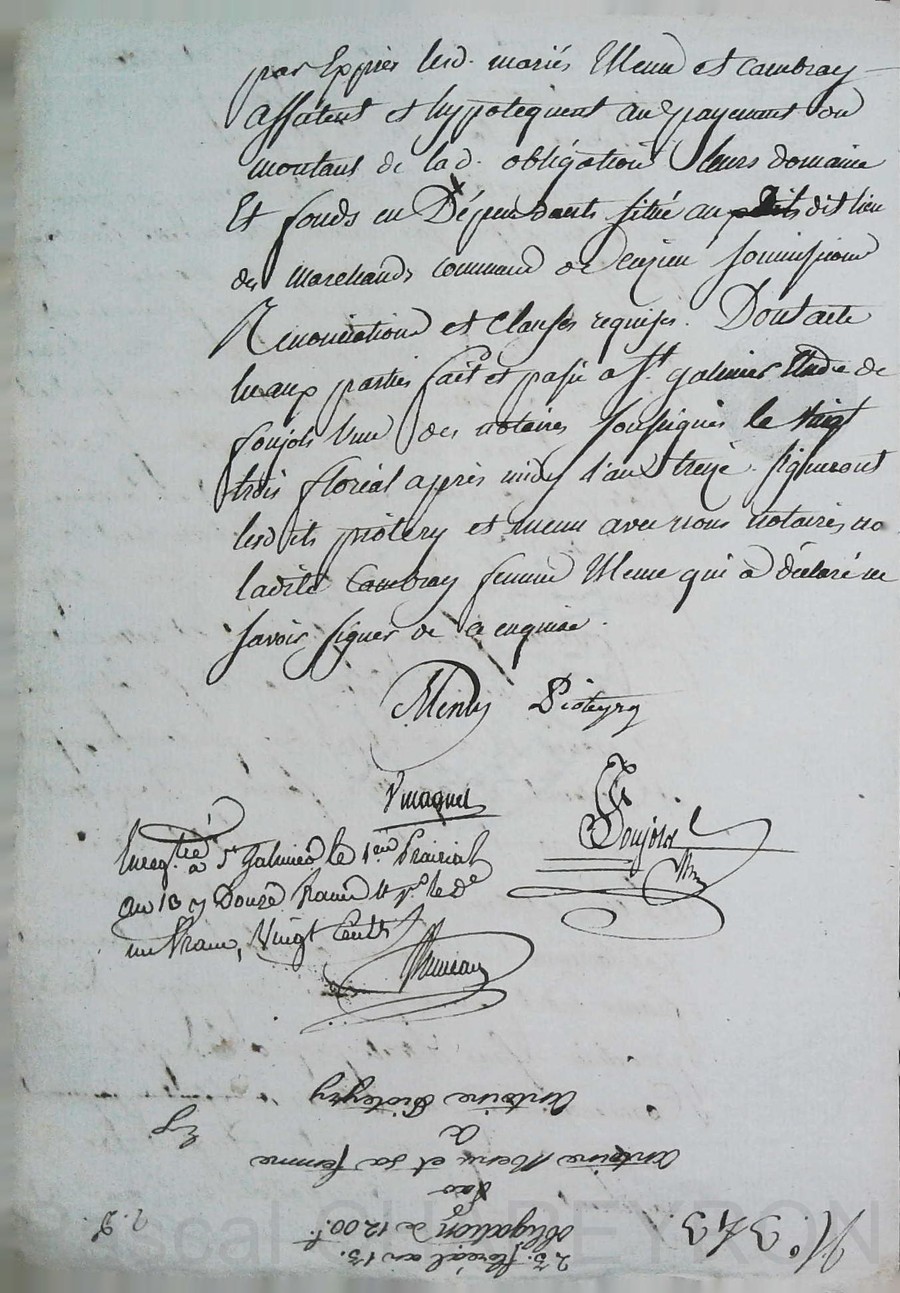 par Exprès lesd. mariés Menu et Cambray
affectent et hypotequent au payement du
montant de lad. obligation leurs domaine
Et fonds en Dépendants situé au dit lieu
des marchands commune de soumissions
Renonciations et clauses requises. Dont acte
beaux parties fait et passé a St. galmier Etude de
soujols l'un des notaires soussignés le vingt
trois floréal après midy l'an treize. signeront
lesdits pioteyry et menu avec nous notaires, no
ladite Cambray femme Menu qui a déclaré ne
savoir signer de ce enquise.
Menu Pioteyry
Vmagnel
Soujols
Enreg.tré a St Galmier le 1er Prairial
an 13 Douze francs le de
un franc, Vingt Cents
23. floréal an 13.
N.o 343.
obligation de 1200.f
par
antoine Menu et sa femme
a
antoine Pioteyry
Pascal CHAPEYRON